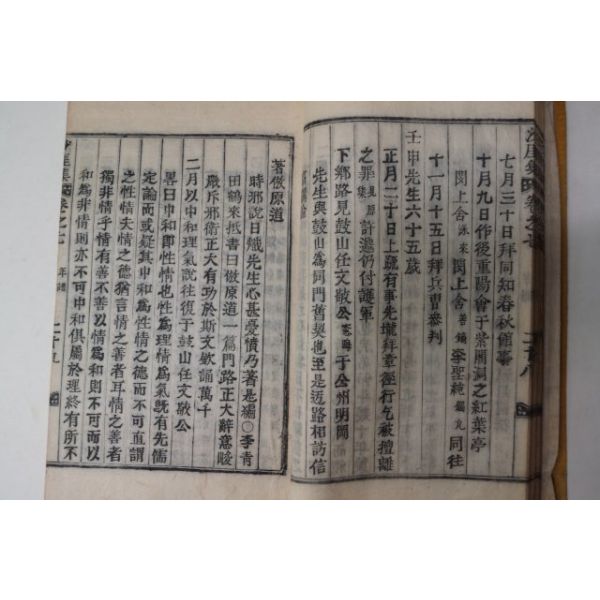 七月三十日拜同知春秋館事
十月九日作後重陽會于紫厲洞之紅葉亭
閔上舍泳來閔上舍善鎬李聖純同往
十一月十五日拜兵曹參判
壬申先生六十五歲
正月二十日上疏有事先壠拜章徑行乞被擅離
之罪許遞仍付護軍
下鄕路見鼓山任文敬公憲晦于公州明岡
先生與鼓山爲同門舊契也至是迃路相訪信
著倣原道
時邪說日熾先生心甚憂憤乃著是編○李靑
田鶴來抵書曰倣原道一篇門路正大辭意峻
嚴斥邪衛正大有功於斯文欽誦萬千
二月以中和理氣說往復于鼓山任文敬公
畧曰中和卽性情也性爲理情爲氣旣有先儒
定論而或疑其中和爲性情之德而不可直謂
之性情夫情之德猶言情之善者耳情之善者
獨非情乎情有善不善以情爲和則不可而以
和爲非情則亦不可中和俱屬於理終有所不
年譜
二十九